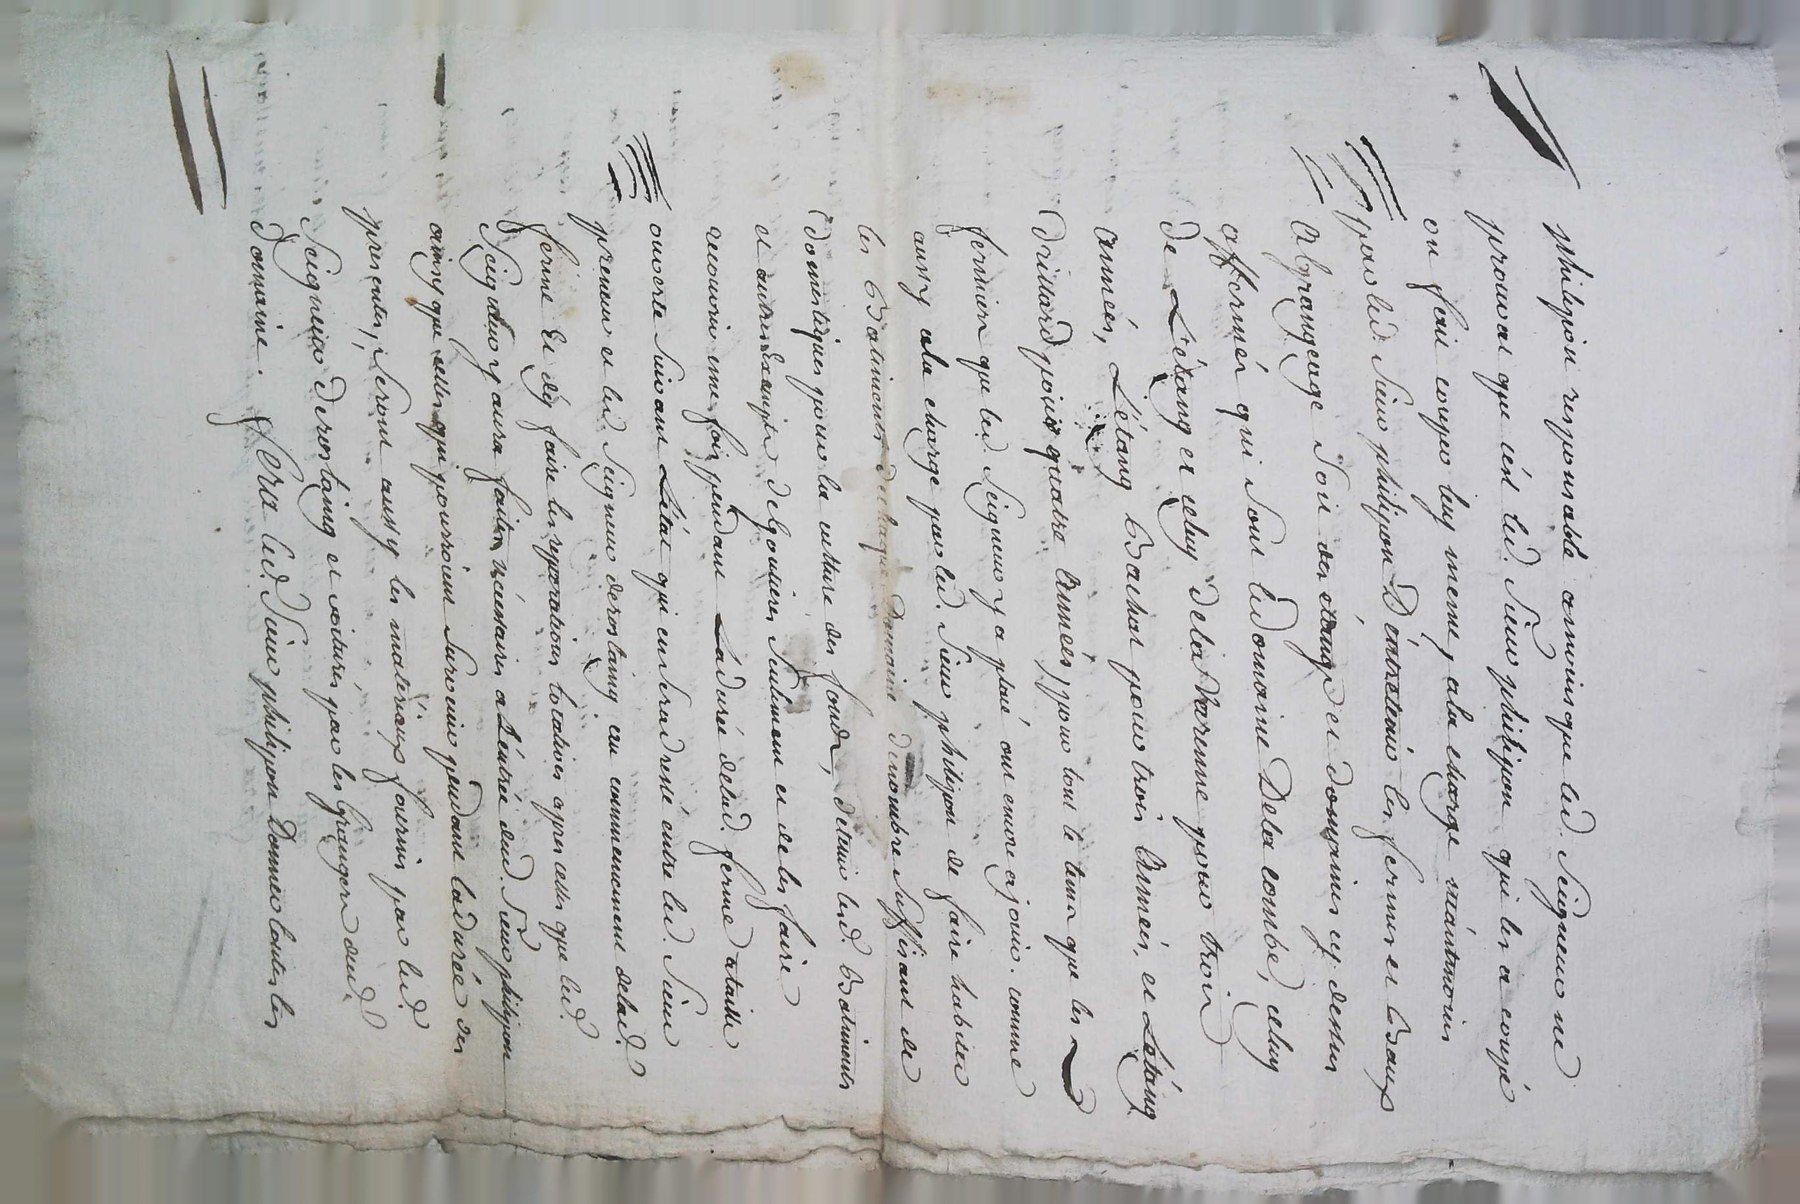 philipon responsable amoins que led. Seigneur ne
prouvat que cést led. Sieur philipon qui les a coupé
ou fait couper luy meme, ala charge néantmoins
par led. Sieur philipon D'éntretenir les fermes et Baux
A grangeage Soit des étangs et domaines cy dessus
affermés qui Sont Ledomaine Dela combe, celuy
de L'étang et celuy dela Varenne pour trois
années, L'étang Bachat pour trois Années, et L'étang
Drillard pour quatre Années, pour tout le tems que les
fermiers que led. Seigneur y a placé ont encore a jouir. comme
aussy ala charge par led. Sieur philipon de faire habiter
les Batiments de chaque Domaine d'un nombre Suffisant de
domestiques pour la culture des fonds, détenir lesd. Batiments
et autres Exempts de goutieres Seulement et deles faire
recouvrir une fois pendant Ladurée delad. ferme atuille
ouverte Suivant L'état qui en Sera dressé entre led. Sieur
preneur et led. Seigneur derostaing au commencement delad.
ferme Et déy faire les reparations locatives apres celles que led.
Seigneur y aura faites nécessaires a L'éntrée dud. Sieur philipon
ainsy que celles qui pourroient Survenir pendant ladurée des
presentes, Seront aussy les materiaux fournis par led.
Seigneur derostaing et voiturés par les grangers dud.
Domaine. Sera led. Sieur philipon Donner toutes les